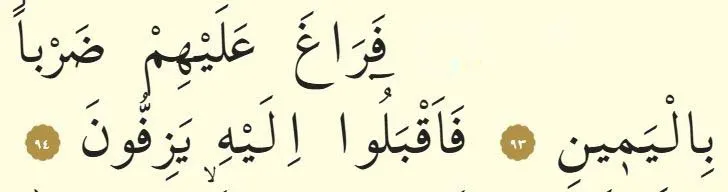 فَرَاغَ عَلَيْهِمْ ضَرْباً
بِالْيَمٖينِ ٩٣ فَاَقْبَلُٓوا اِلَيْهِ يَزِفُّونَ ٩٤